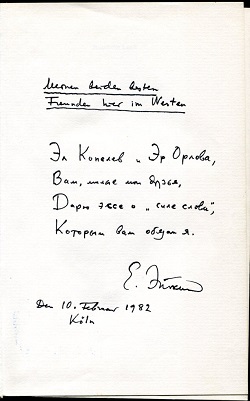 Meinen beiden besten
Freunden hier im Westen
Эл Копелев и Эр Орлова,
Вам, милые мои друзья,
Дарю эссе о „силе слова“,
Которым вам обязан я.
Е. Эткинд
Den 10. Februar 1982
Köln